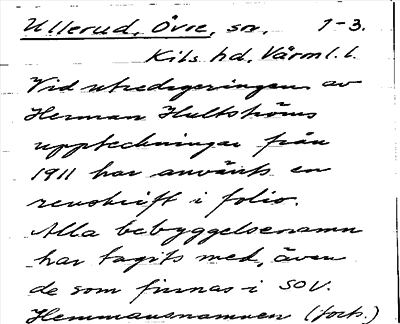 Ullerud, Övre, sn. 1-3.
Kils hd, Värml. l.
Vid utredigeringen av
Herman Hultströms
uppteckningar från
1911 har använts en
renskrift i folio.
Alla bebyggelsenamn
har tagits med, även
de som finnas i SOV.
Hemmansnamnen (forts.)